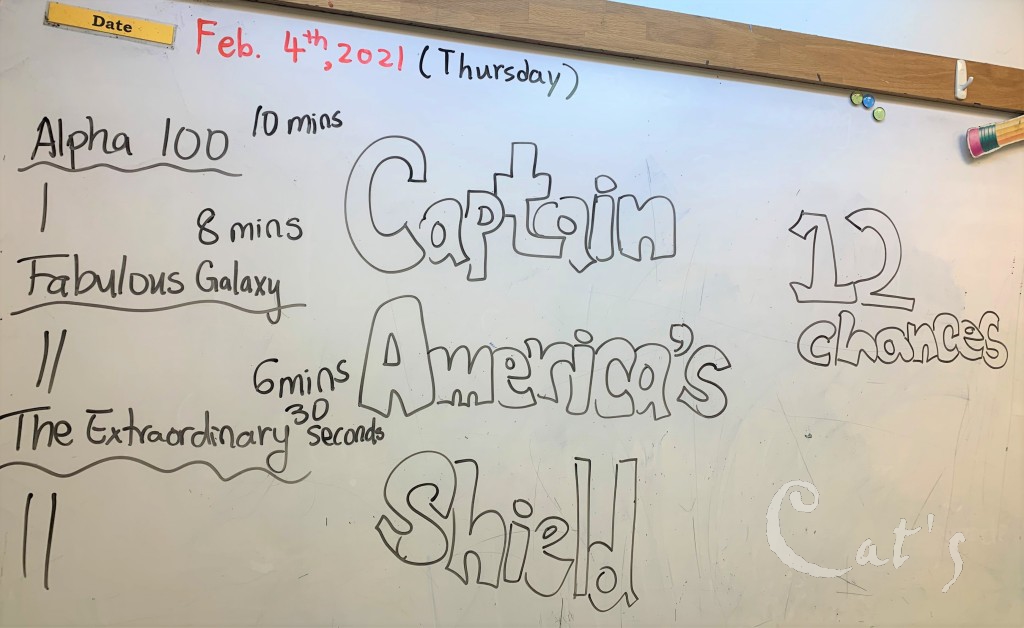 Date
Feb. 4th, 2021 (Thursday)
Alpha 100 10 mins
|
8 mins
Fabulous Galaxy
||
6 mins
30
The Extraordinary seconds
||
Captain
America's
Shield
12
chances
Cat's